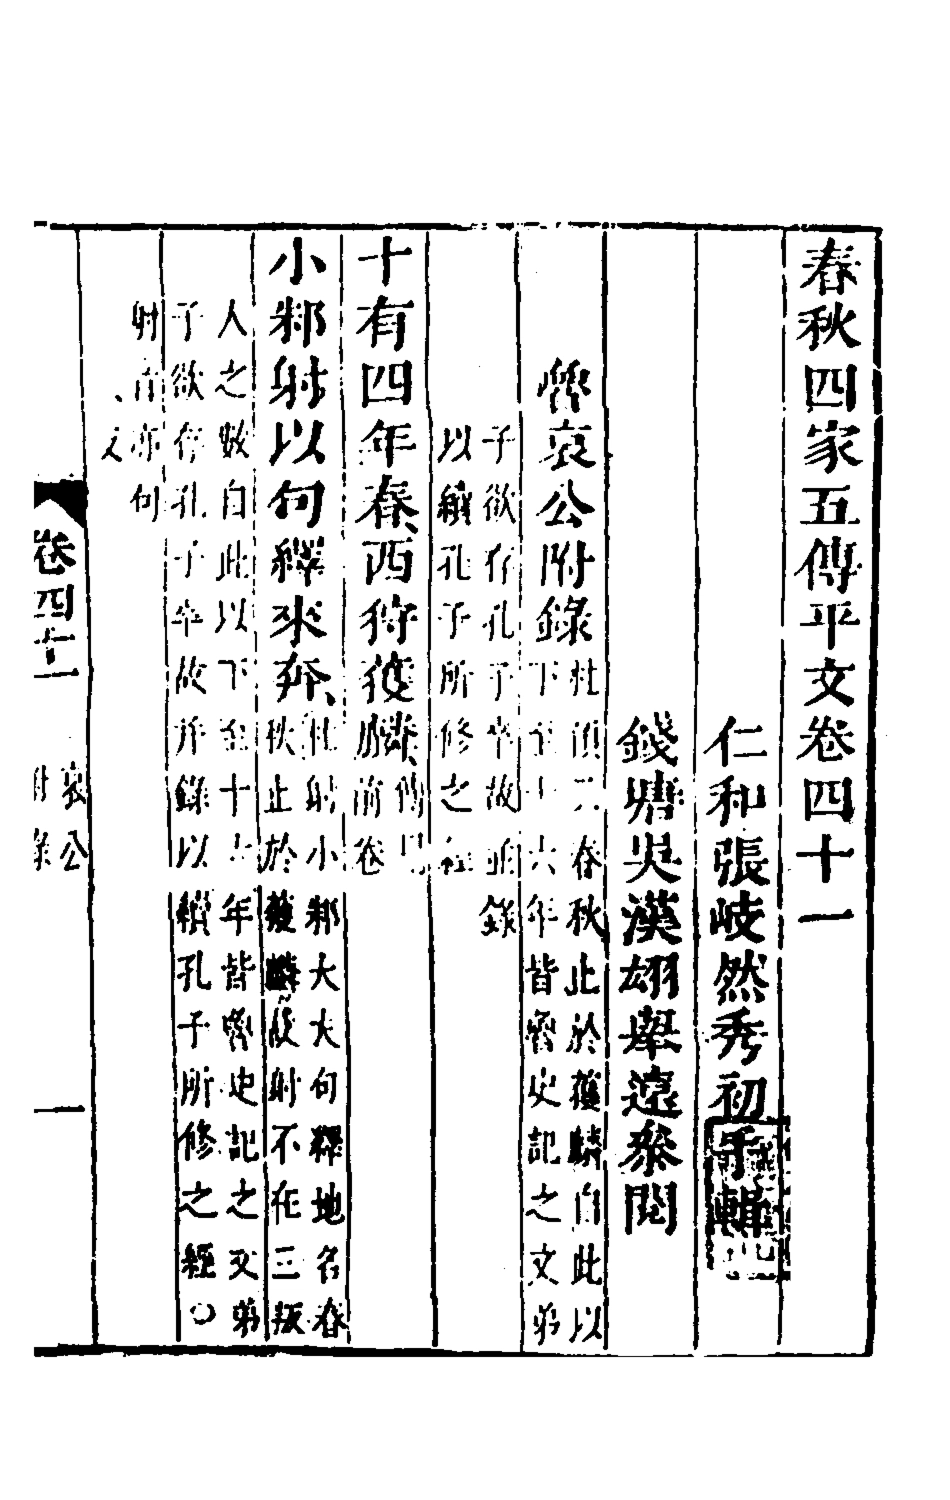 春秋四家五傳平文卷四十一
仁和張岐然秀初手輯
錢塘吳漢翊舉遠參閱
魯哀公附錄
杜預云春秋止於獲麟自此以
下至十六年皆魯史記之文弟
子欲存孔子卒故並錄
以續孔子所修之經
十有四年春西狩獲麟
傳見
前卷
小邾射以句繹來奔
杜射小邾大夫句繹地名春
秋止於獲麟故射不在三叛
人之數自此以下至十六年皆魯史記之文弟
子欲存孔子卒故并錄以續孔子所修之經○
射音亦句
卷四十一
哀公
附錄
一